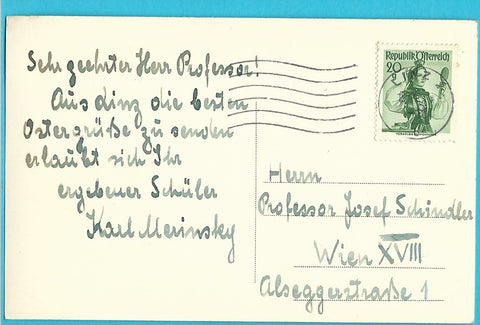 Sehr geehrter Herr Professor!
Aus Linz die besten
Ostergrüße zu senden
erlaubt sich Ihr
ergebener Schüler
Karl Merinsky
Republik Österreich
20
Herrn
Professor Josef Schindler
Wien XVIII
Alseggerstraße 1